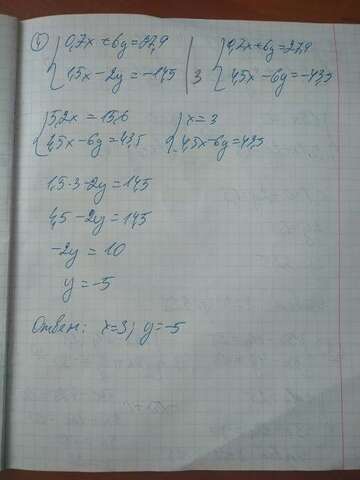 4) {0,7x+6y=27,9 {0,7x+6y=27,9
{1,5x-2y=-14,5 | 3 {4,5x-6y=-43,5
{5,2x=15,6 {x=3
{4,5x-6y=43,5 {4,5x-6y=43,5
1,5·3-2y=14,5
4,5-2y=14,5
-2y=10
y=-5
Ответ: x=3; y=-5